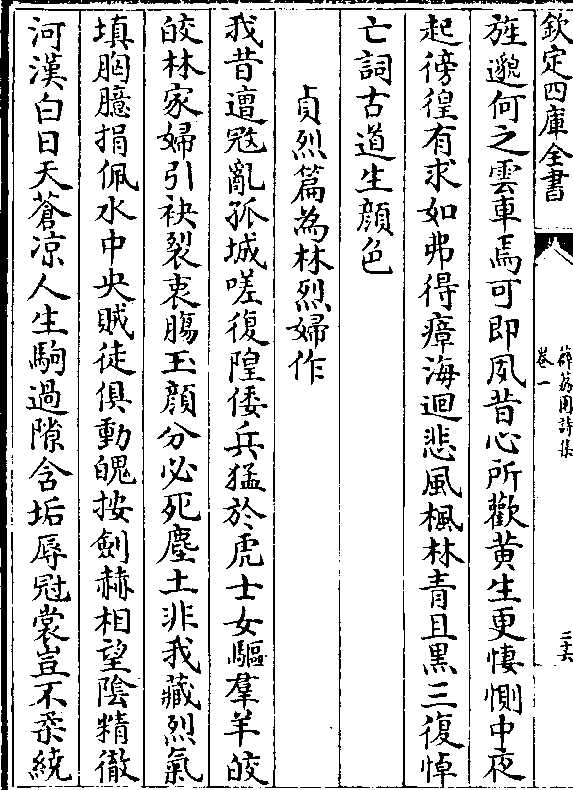 欽定四庫全書
薜荔園詩集
卷一
二十六
旌邈何之雲車焉可即夙昔心所歡黄生更悽惻中夜
起徬徨有求如弗得瘴海迴悲風楓林青且黒三復悼
亡詞古道生顔色
貞烈篇為林烈婦作
我昔遭冦亂孤城嗟復隍倭兵猛於虎士女驅羣羊皎
皎林家婦引袂裂衷腸玉顔分必死塵土非我藏烈氣
填胸臆捐佩水中央賊徒俱動魄按劍赫相望陰精徹
河漢白日天蒼凉人生駒過隙含垢辱冠裳豈不柔繞